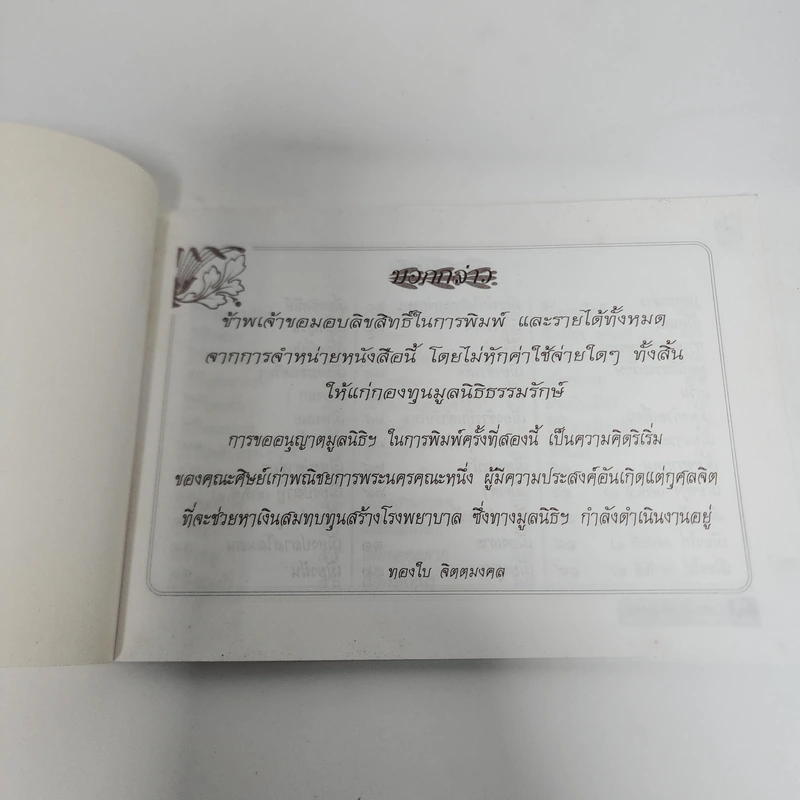 บอกกล่าว
ข้าพเจ้าขอมอบลิขสิทธิ์ในการพิมพ์ และรายได้ทั้งหมด
จากการจำหน่ายหนังสือนี้ โดยไม่หักค่าใช้จ่ายใดๆ ทั้งสิ้น
ให้แก่กองทุนมูลนิธิธรรมรักษ์
การขออนุญาตมูลนิธิฯ ในการพิมพ์ครั้งที่สองนี้ เป็นความคิดริเริ่ม
ของคณะศิษย์เก่าพณิชยการพระนครคณะหนึ่ง ผู้มีความประสงค์อันเกิดแต่กุศลจิต
ที่จะช่วยหาเงินสมทบทุนสร้างโรงพยาบาล ซึ่งทางมูลนิธิฯ กำลังดำเนินงานอยู่
ทองใบ จิตตมงคล